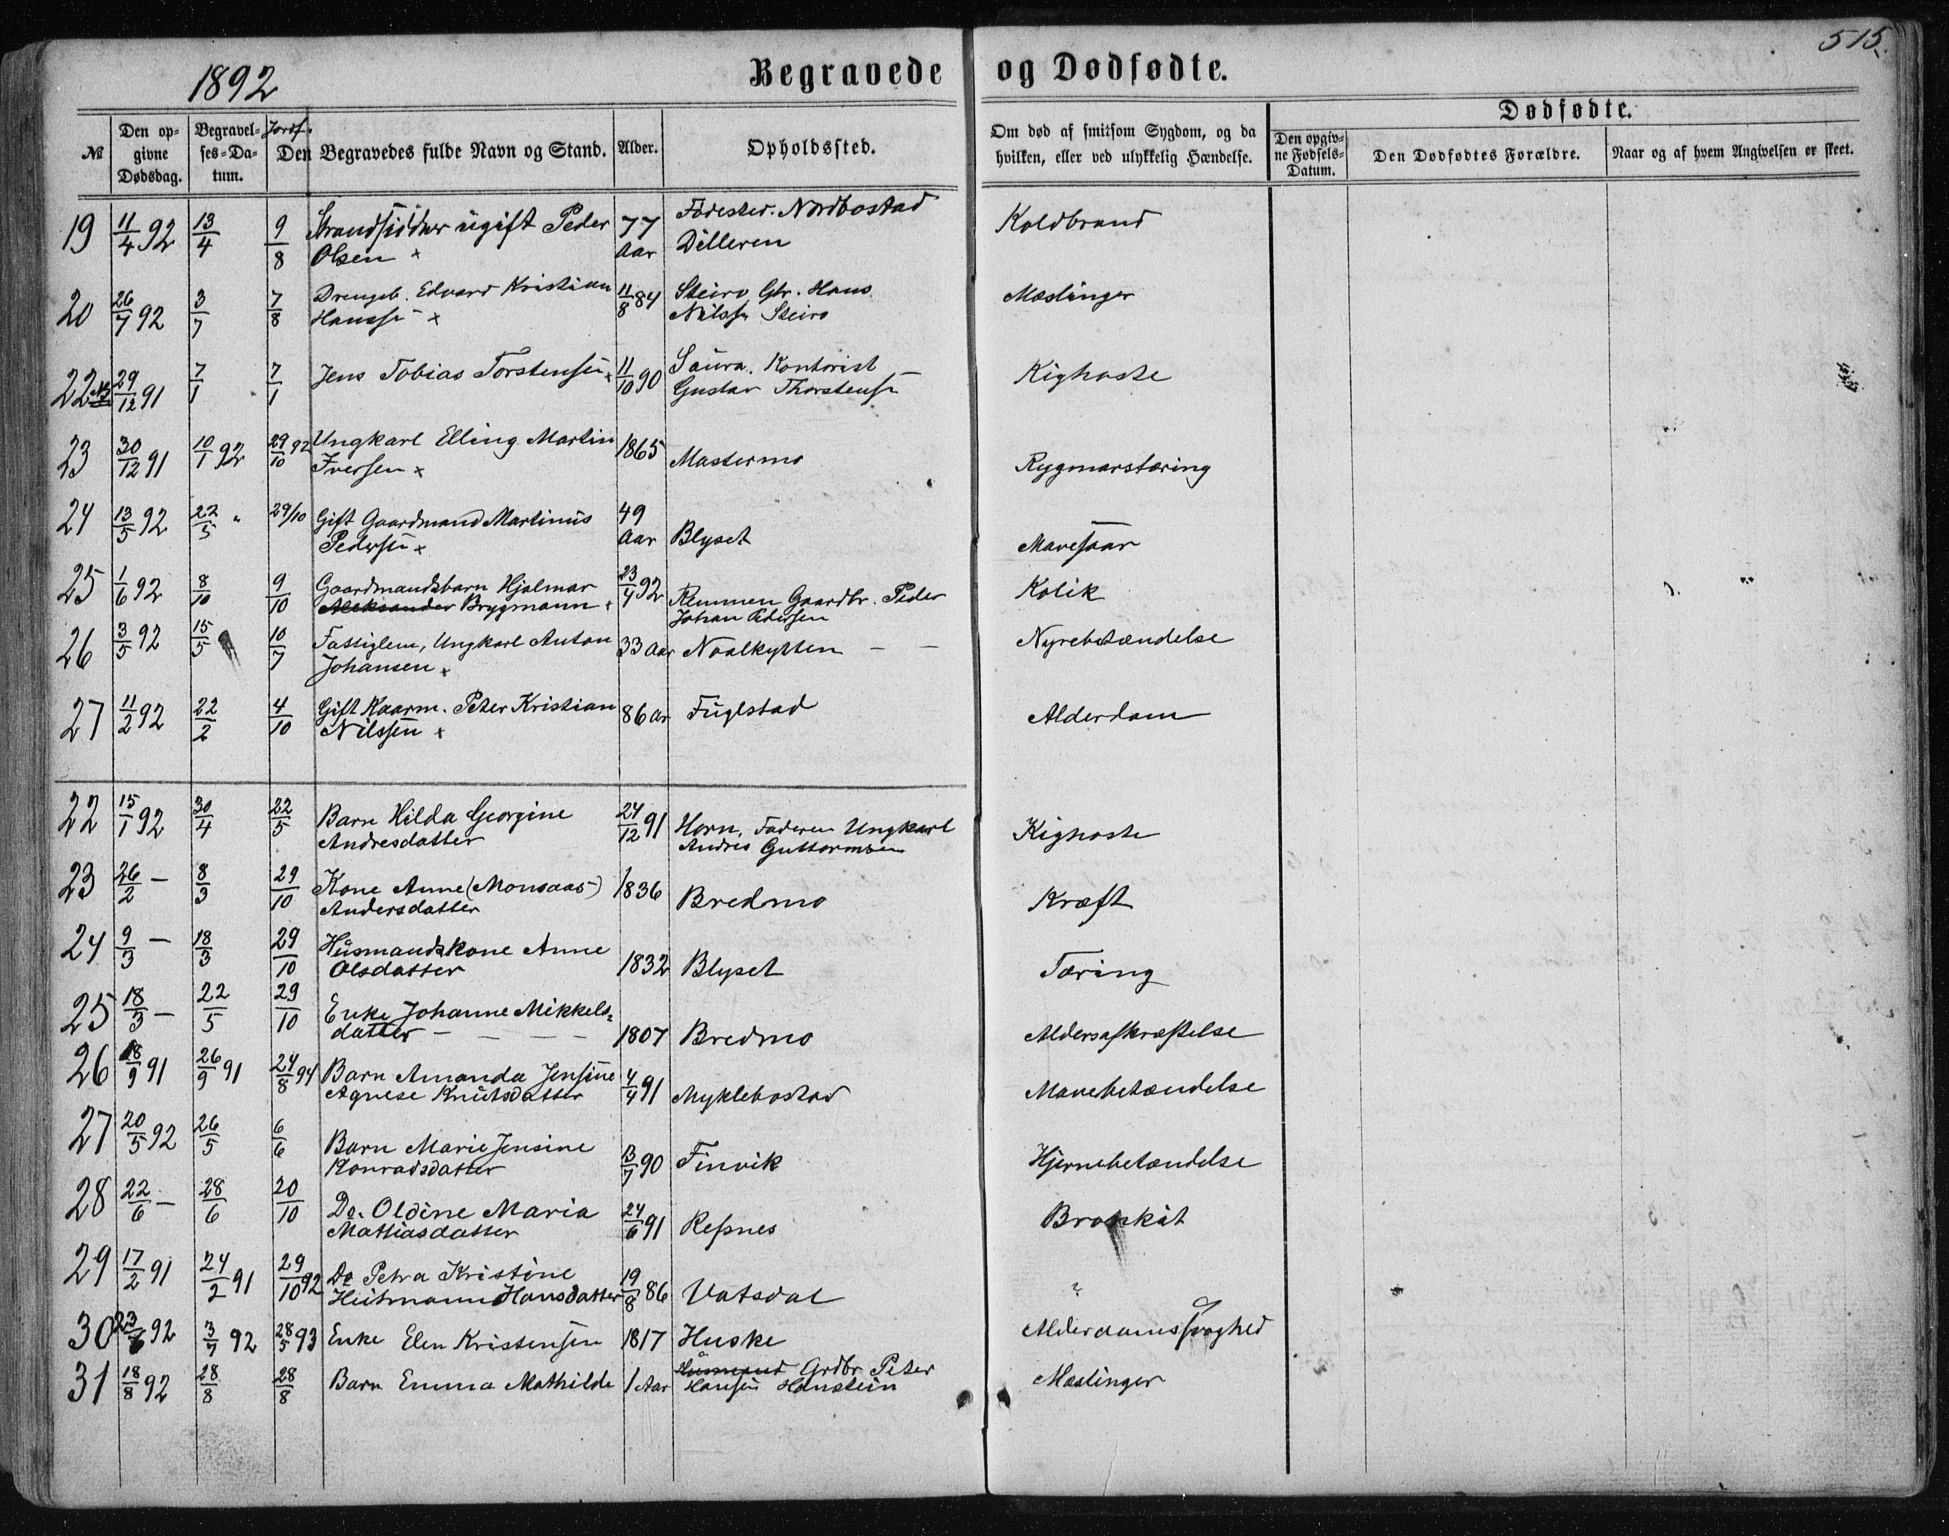 515.
1892 Begravede og Dødfødte.
№ Den opgivne Dødsdag. Begravelses-Datum. Jordf. Den Begravedes fulde Navn og Stand. Alder. Opholdssted. Om død af smitsom Sygdom, og da hvilken, eller ved ulykkelig Hændelse. Dødfødte. Den opgivne Fødsels-Datum. Den Dødfødtes Forældre. Naar og af hvem Angivelsen er skeet.
19 11/4 92 13/4 9/8 Strandsidder ugift Peder 77 Nordbostad Koldbrand
Olsen x Aar Dilleren
20 26/7 92 3/7 7/8 Drengeb. Edvard Kristian 11/8 84 Steiro Gbr. Hans Mæslinger
Hanssen x Nilssen Steiro
22 29/12 91 7/1 7/1 Jens Tobias Torstensen x 11/10 90 Saura. Kontorist Kighoste
Gustav Thorstensen
23 30/12 91 10/1 92 29/10 92 Ungkarl Elling Martin 1865 Mastermo Rygmarstæring
Iversen x
24 13/5 92 22/5 " 29/10 Gift Gaardmand Martinus 49 Blyset Mavesaar
Pedersen x Aar
25 1/6 92 8/10 9/10 Gaardmandsbarn Hjalmar 23/4 92 Remmen Gaardbr. Peder Kolik
Aleksander Brygmann x Johan Pedersen
26 3/5 92 15/5 10/7 Fattiglem, Ungkarl Anton 33 Aar Naalkytten — — Nyrebetændelse
Johansen x
27 11/2 92 22/2 4/10 Gift Kaarm. Peter Kristian 86 Ar Fuglstad Alderdom
Nilssen x
22 15/1 92 30/4 22/5 Barn Hilda Georgine 24/12 91 Horn, Faderen Ungkarl Kighoste
Andresdatter Andres Guttormsen
23 26/2 — 8/3 29/10 Kone Anne (Monsaas) 1836 Bredmo Kræft
Andersdatter
24 9/3 — 18/3 29/10 Husmandskone Anne 1832 Blyset Tæring
Olsdatter
25 18/3 — 22/5 29/10 Enke Johanne Mikkels-
datter — — — — 1807 Bredmo Aldersafkræftelse
26 18/9 91 26/9 91 24/8 94 Barn Amanda Jensine 4/4 91 Myklebostad Mavebetændelse
Agnese Knutsdatter
27 20/5 92 26/5 6/6 Barn Marie Jensine 13/7 90 Finvik Hjernebetændelse
Konradsdatter
28 22/6 — 28/6 20/10 Do. Oldine Maria 24/6 91 Repnes Bronkit
Mattiasdatter
29 17/2 91 24/2 91 29/10 92 Do Petra Kristine 19/8 86 Vatsdal "
Heitmann Hansdatter
30 92 3/7 92 28/5 93 Enke Elen Kristensen 1817 Huske Alderdomssvaghed
31 18/8 92 28/8 28/8 Barn Emma Mathilde 1 Aar Husmand Grdbr. Peter Mæslinger
Hansen Hanstein